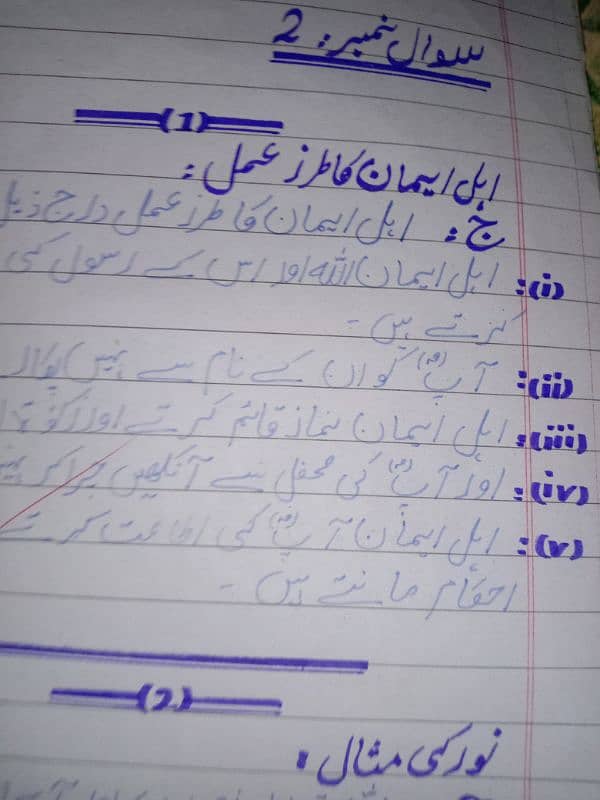 سوال نمبر: 2
(1)
اہل ایمان کا طرز عمل:
ج: اہل ایمان کا طرز عمل درج ذیل
(i): اہل ایمان اللہ اور اس کے رسول کی
کرتے ہیں۔
(ii): آپؐ کو ان کے نام سے نہیں
(iii): اہل ایمان نماز قائم کرتے اور زکوٰۃ
(iv): اور آپؐ کی محفل سے آنکھیں چرا کر
(v): اہل ایمان آپؐ کی اطاعت کرتے
احکام مانتے ہیں۔
(2)
نور کی مثال: